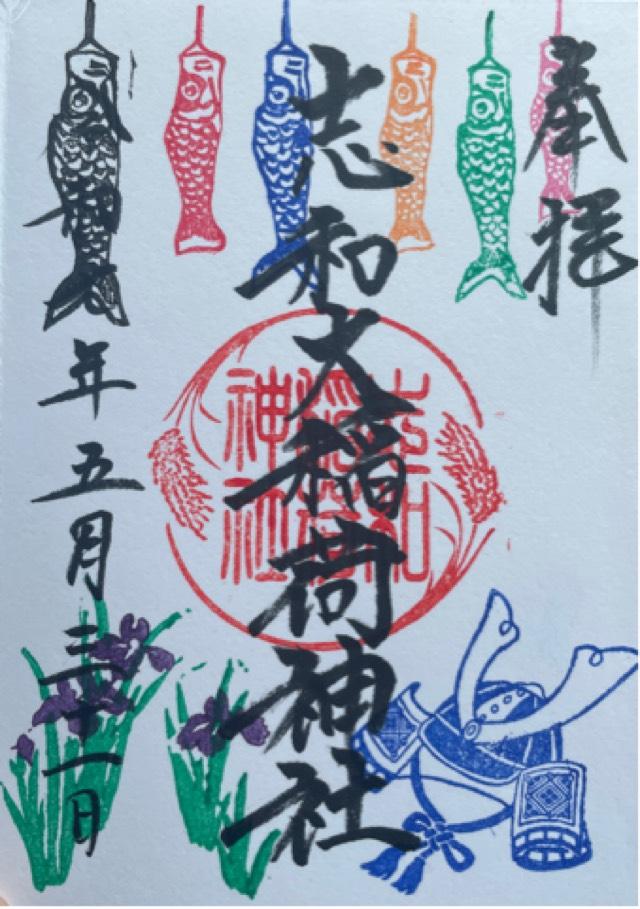 奉拝
志和大稲荷神社
神社
令和年五月三十一日